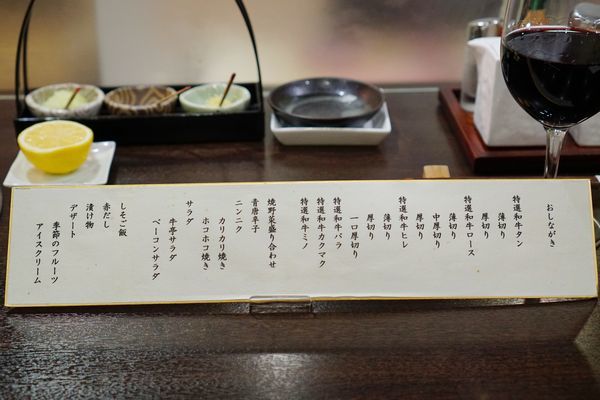 おしながき
特選和牛タン
薄切り
厚切り
特選和牛ロース
薄切り
中厚切り
厚切り
特選和牛ヒレ
薄切り
厚切り
一口厚切り
特選和牛バラ
特選和牛カクマク
特選和牛ミノ
焼野菜盛り合わせ
青唐辛子
ニンニク
カリカリ焼き
ホコホコ焼き
サラダ
牛亭サラダ
ベーコンサラダ
しそご飯
赤だし
漬け物
デザート
季節のフルーツ
アイスクリーム